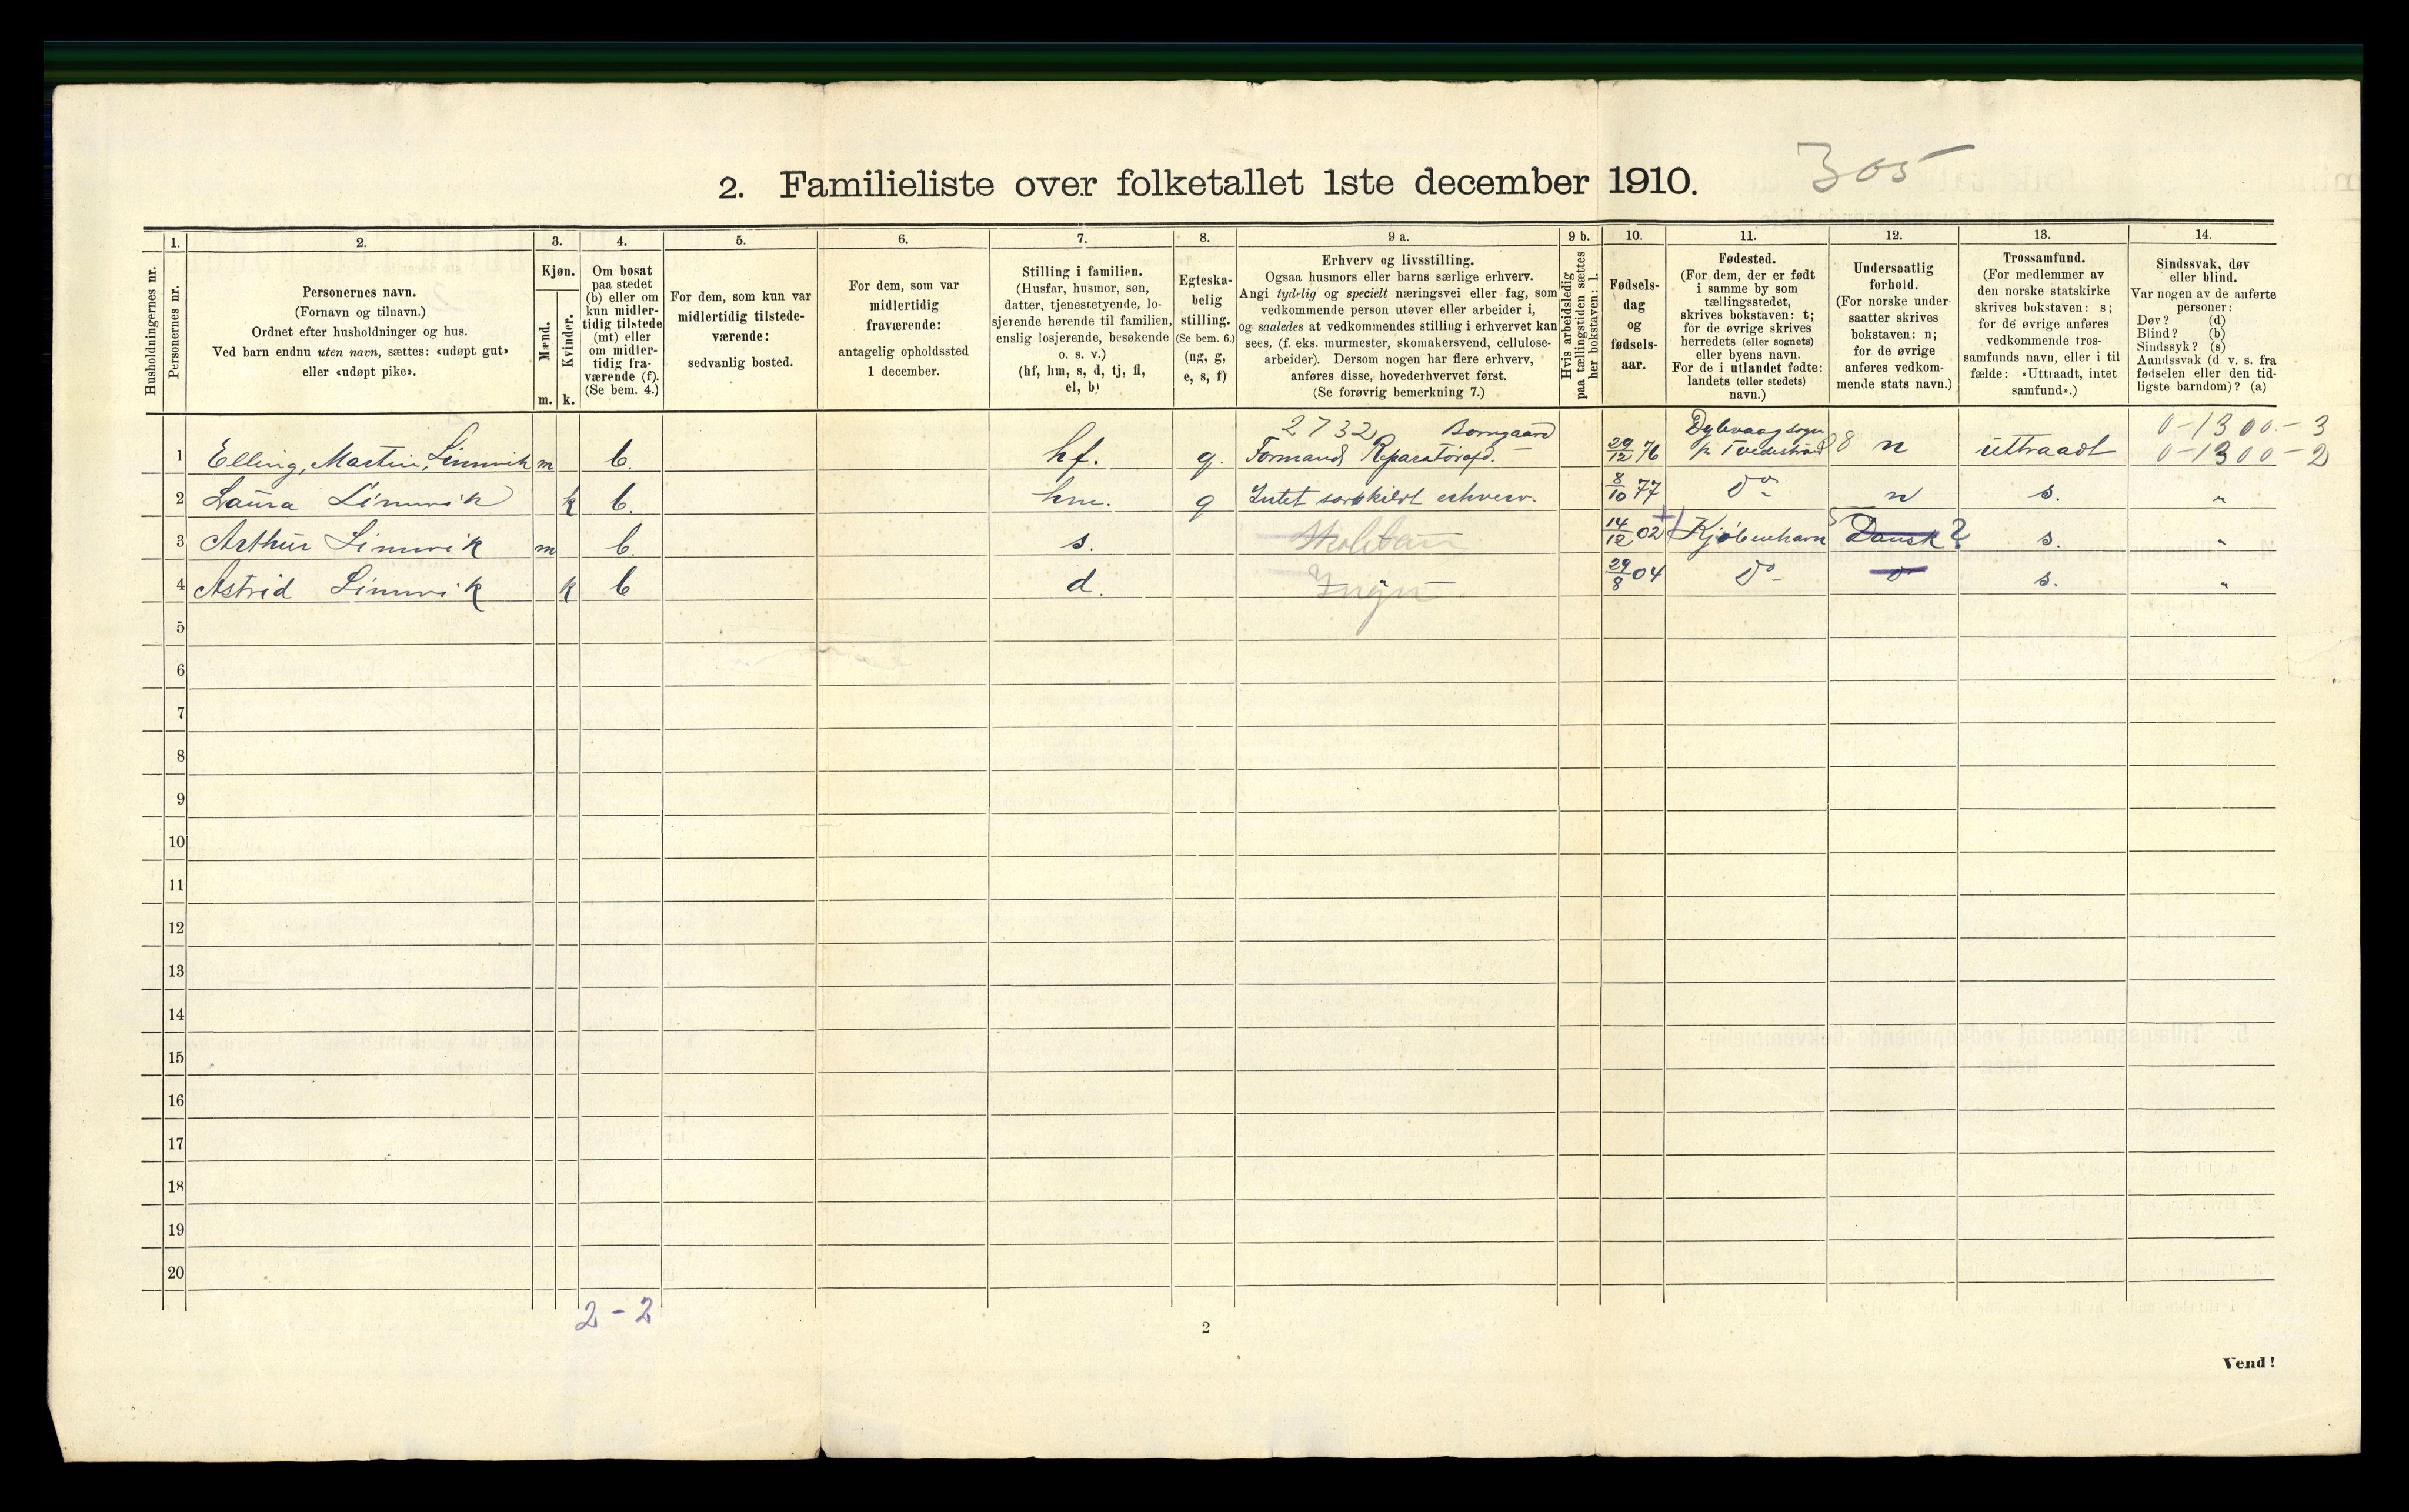 305
2. Familieliste over folketallet 1ste december 1910.
Husholdningernes nr.
1.
Personernes nr.
2.
Personernes navn.
(Fornavn og tilnavn.)
Ordnet efter husholdninger og hus.
Ved barn endnu uten navn, sættes: «udøpt gut»
eller «udøpt pike».
3.
Kjøn.
Mænd.
Kvinder.
m. k.
4.
Om bosat
paa stedet
(b) eller om
kun midler-
tidig tilstede
(mt) eller
om midler-
tidig fra-
værende (f).
(Se bem. 4.)
5.
For dem, som kun var
midlertidig tilstede-
værende:
sedvanlig bosted.
6.
For dem, som var
midlertidig
fraværende:
antagelig opholdssted
1 december.
7.
Stilling i familien.
(Husfar, husmor, søn,
datter, tjenestetyende, lo-
sjerende hørende til familien,
enslig losjerende, besøkende
o. s. v.)
(hf, hm, s, d, tj, fl,
el, b)
8.
Egteska-
belig
stilling.
(Se bem. 6.)
(ug, g,
e, s, f)
9 a.
Erhverv og livsstilling.
Ogsaa husmors eller barns særlige erhverv.
Angi tydelig og specielt næringsvei eller fag, som
vedkommende person utøver eller arbeider i,
og saaledes at vedkommendes stilling i erhvervet kan
sees, (f. eks. murmester, skomakersvend, cellulose-
arbeider). Dersom nogen har flere erhverv,
anføres disse, hovederhvervet først.
(Se forøvrig bemerkning 7.)
9 b.
Hvis arbeidsledig
paa tællingstiden sættes
her bokstaven: l.
10.
Fødsels-
dag
og
fødsels-
aar.
11.
Fødested.
(For dem, der er født
i samme by som
tællingsstedet,
skrives bokstaven: t;
for de øvrige skrives
herredets (eller sognets)
eller byens navn.
For de i utlandet fødte:
landets (eller stedets)
navn.)
12.
Undersaatlig
forhold.
(For norske under-
saatter skrives
bokstaven: n;
for de øvrige
anføres vedkom-
mende stats navn.)
13.
Trossamfund.
(For medlemmer av
den norske statskirke
skrives bokstaven: s;
for de øvrige anføres
vedkommende tros-
samfunds navn, eller i til
fælde: «Uttraadt, intet
samfund».)
14.
Sindssvak, døv
eller blind.
Var nogen av de anførte
personer:
Døv? (d)
Blind? (b)
Sindssyk? (s)
Aandssvak (d. v. s. fra
fødselen eller den tid-
ligste barndom)? (a)
2732 Dybvaag sogn 0-1300-3
1 Elling, Martin, Linnvik m b. hf. g. Formand Reparatørafd. 29/12 76 p. Tvedestrand 8 n uttraadt 0-1300-2
2 Laura Linnvik k b. hm. g Intet særskildt erhverv. 8/10 77 Do n s. "
3 Arthur Linnvik m b. s. Skolebarn 14/12 02 Kjøbenhavn Dansk ? s. "
4 Astrid Linnvik k b d. Ingn 29/8 04 Do s. "
5
6
7
8
9
10
11
12
13
14
15
16
17
18
19
20
2-2
2
Vend!